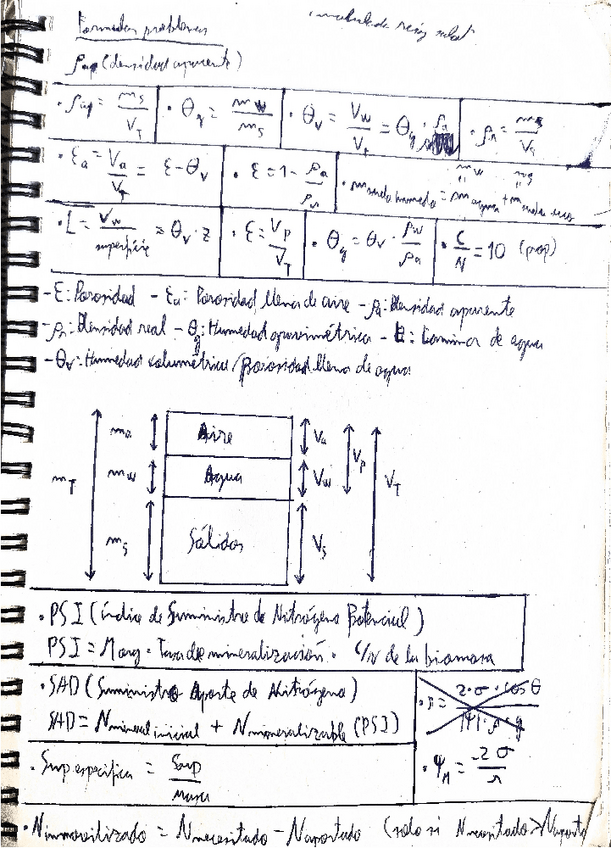 Formulas problemas
ρap (densidad aparente)
· ρap = ms/VT · θg = mw/ms · θv = Vw/VT = θg · ρa · ρr = ms/Vs
· εa = Va/VT = ε - θv · ε = 1 - ρa/ρr · m suelo humedo = m agua + m suelo seco
mw ms
· L = Vw/superficie = θv · z · ε = Vp/VT · θg = θv · ρw/ρa · C/N = 10 (prop)
- ε: Porosidad - εa: Porosidad llena de aire - ρa: Densidad aparente
- ρr: Densidad real - θg: Humedad gravimétrica - L: Lamina de agua
- θv: Humedad volumétrica/porosidad llena de agua
mT ma Aire Va Vp VT
mw Agua Vw
ms Sólidos Vs
· PSI (índice de Suministro de Nitrógeno Potencial)
PSI = Morg · Tasa de mineralización · C/N de la biomasa
· SAD (Suministro Aporte de Nitrógeno)
SAD = Nmineral inicial + Nmineralizable (PSI)
· r = 2·σ·cosθ/|Ψ|·ρ·g
· Sup. específica = Sup/masa
· ΨM = -2σ/r
· Ninmovilizado = Nnecesitado - Naportado (solo si Nnecesitado > Naportado